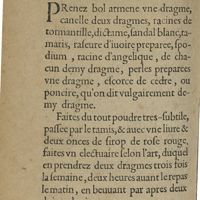 PRenez bol armene vne dragme,
canelle deux dragmes, racines de
tormantille, dictame, sandal blanc, ta-
maris, raseure d'iuoire preparee, spo-
dium, racine d'angelique, de cha-
cun demy dragme, perles preparees
vne dragme, escorce de cedre, ou
poncire, qu'on dit vulgairement de-
my dragme.
Faites du tout poudre tres-subtile,
passee par le tamis, & auec vne liure &
deux onces de sirop de rose rouge,
faites vn electuaire selon l'art, duquel
en prendrez deux dragmes trois fois
la semaine, deux heures auant le repas
le matin, en beuuant par apres deux